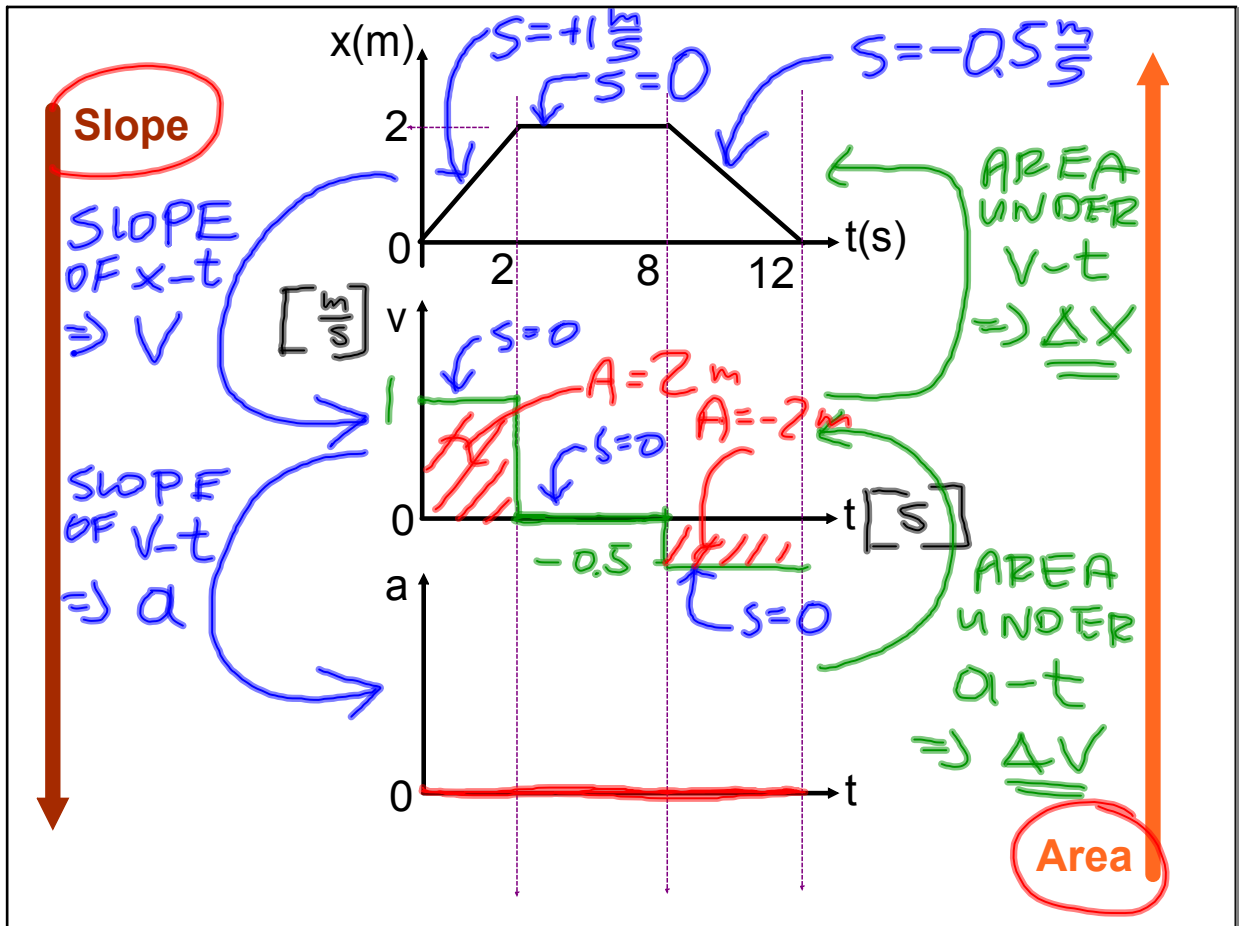 Slope
SLOPE
OF x-t
=> V
SLOPE
OF V-t
=> a
x(m)
S=+1 m/s
S=0
S=-0.5 m/s
2
0
2
8
12
t(s)
[m/s]
v
1
s=0
A=2 m
A=-2 m
s=0
0
-0.5
t
[s]
s=0
a
0
t
AREA
UNDER
V-t
=> ΔX
AREA
UNDER
a-t
=> ΔV
Area